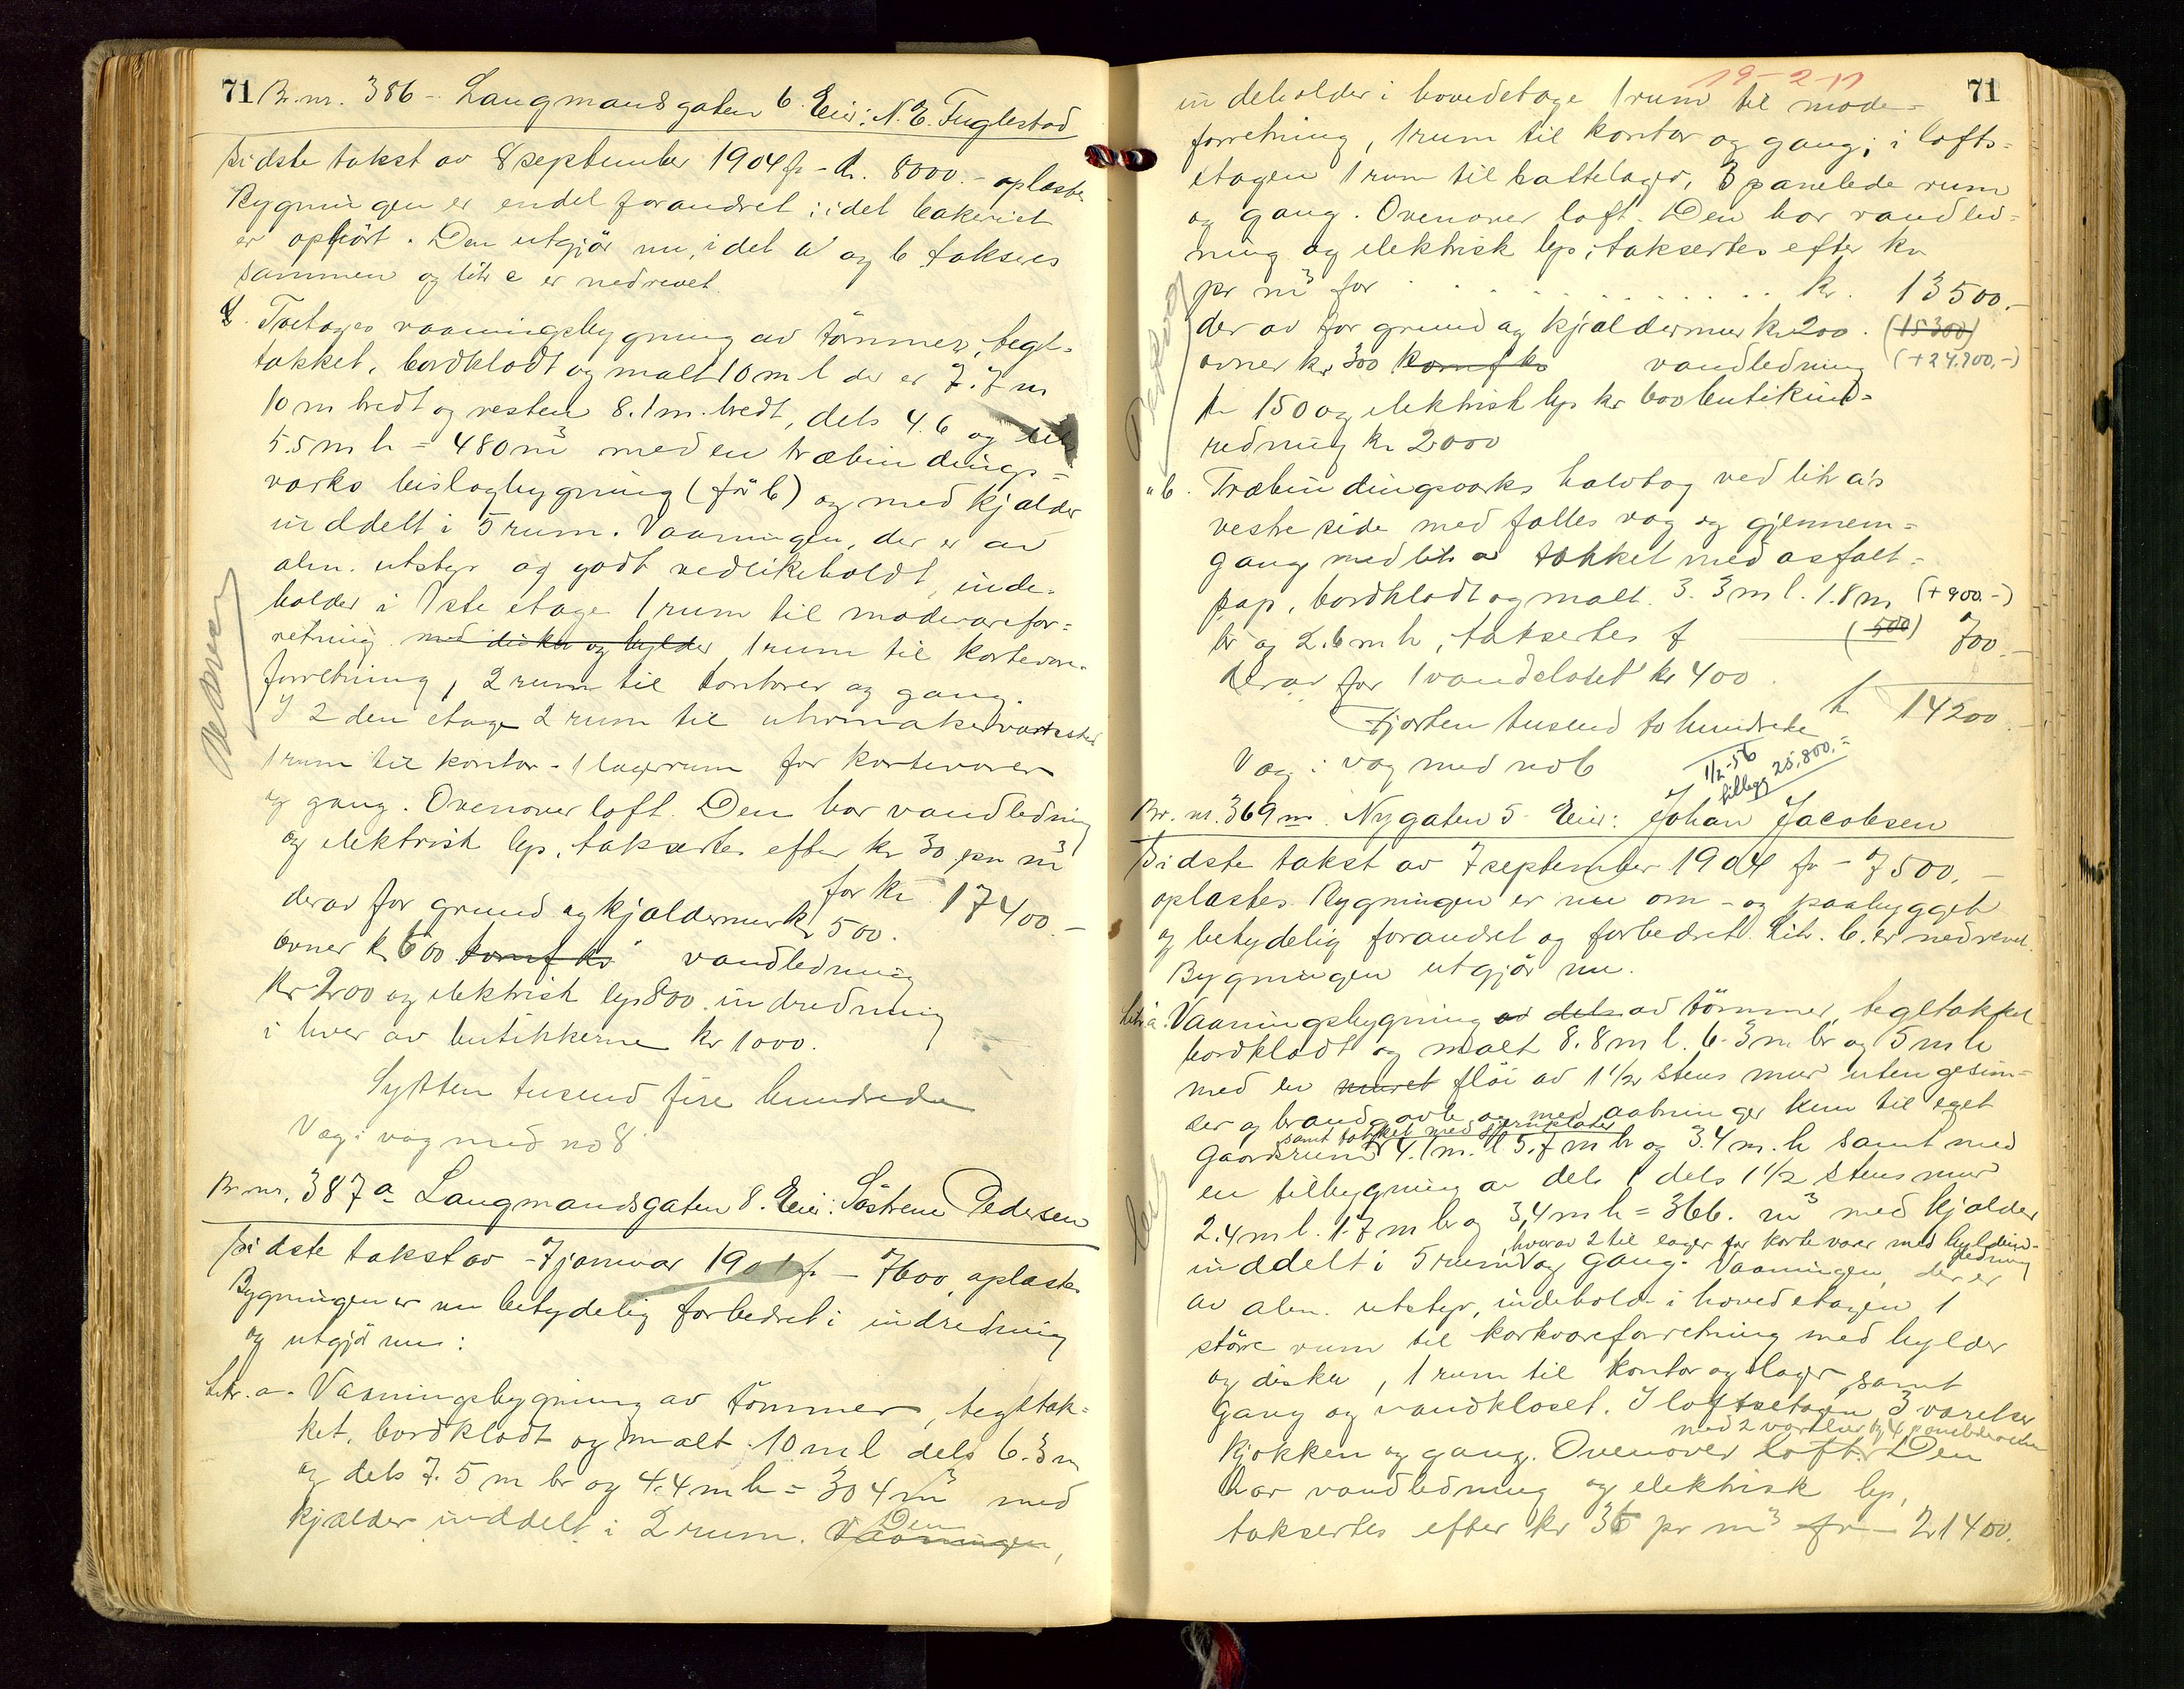 71 Br. nr. 386 - Langmandsgaten 6. Eier: N. E. Fuglestad
Sidste takst av 8 september 1904 fr - kr. 8000.- oplæstes
Bygningen er endel forandret i idet bakeriet
er ophört. Den utgjör nu, idet a og b takseres
sammen og litr c er nedrevet.
Toetages vaaningsbygning av tömmer, tegl-
takket, bordklædt og malt 10 m l der er 7.7 m
10 m bredt og resten 8.1 m. bredt, dels 4.6 og
5.5 m h = 480 m³ med en træbindings-
verks bislagbygning (för b) og med kjælder
inddelt i 5 rum. Vaaningen, der er av
alm. utstyr og godt vedlikeholdt, inde-
holder i 1ste etage 1 rum til modevarefor-
retning med diske og hylder 1 rum til kortevare-
forretning, 2 rum til kontorer og gang.
I 2den etage 2 rum til uhrmakerverksted
1 rum til kontor - 1 lagerrum for kortevarer
og gang. Ovenover loft. Den har vandledning
og elektrisk lys, takseres efter kr 30 pr m³
for kr 17400.-
derav for grund og kjældermur kr 500.
ovner kr 600 komf kr vandledning
kr 200 og elektrisk lys 800. indredning
i hver av butikkerne kr 1000.
Sytten tusend fire hundrede
Væg i væg med no 8
Br. nr. 387a Langmandsgaten 8. Eier: Söstrene Pedersen
Sidste takst av 7 januar 1901 fr - 7600, oplæstes
Bygningen er nu betydelig forbedret i indredning
og utgjör nu:
Litr. a. Vaaningsbygning av tömmer, tegltak-
ket, bordklædt og malt 10 m l dels 6.3 m
og dels 7.5 m br og 4.4 m h = 304 m³ med
kjælder inddelt i 2 rum. Vaaningen, Den
19-2-17
71
indeholder i hovedetage 1 rum til mode-
forretning, 1 rum til kontor og gang; i lofts-
etagen 1 rum til hattelager, 3 panelede rum
og gang. Ovenover loft. Den har vandled-
ning og elektrisk lys; takseres efter kr
pr m³ for . . . . . . . . . kr. 13500.-
derav for grund og kjældermur kr 200. (15300)
ovner kr 300 komf kr vandledning (+24.900,-)
kr 150 og elektrisk lys kr 600 butikind-
redning kr 2000
" b. Træbindingsverks halvtag ved litr a's
vestre side med fælles væg og gjennem-
gang med litr a takket med asfalt-
pap, bordklædt og malt. 3.3 m l. 1.8 m (+900.-)
br og 2.6 m h, takseres f (500) 700.-
derav for 1 vandkloset kr 400.
Fjorten tusend to hundrede kr 14200.-
Væg i væg med no 6
1/2-56
tillegg 25.800.-
Br. nr. 369 m. Nygaten 5. Eier: Johan Jacobsen
Sidste takst av 7 september 1904 fr - 7500.-
oplæstes. Bygningen er nu om- og paabygget
og betydelig forandret og forbedret. Litr. b. er nedrevet.
Bygningen utgjör nu.
Litr a. Vaaningsbygning av dels av tömmer, tegltakket
bordklædt og malt 8.8 m l. 6.3 m br og 5 m h
med en muret flöi av 1 1/2 stens mur uten gesim-
ser og brandgavle og med aabninger kun til eget
samt takket med jernplater
gaardsrum 4.1 m. l 5.7 m br og 3.4 m. h samt med
en tilbygning av dels 1 dels 1 1/2 stens mur
2.4 m l. 1.7 m br og 3,4 m h = 366. m³ med kjælder
hvorav 2 til lager for kortevarer med hyldeind-
redning
inddelt i 5 rum og gang. Vaaningen, der er
av alm. utstyr, indehold. i hovedetagen 1
större rum til kortvareforretning med hylder
og diske, 1 rum til kontor og lager samt
gang og vandkloset. I loftsetagen 3 værelser
kjökken og gang. Ovenover loft. Den
har vandledning og elektrisk lys,
takseres efter kr 36 pr m³ fr - 21400.